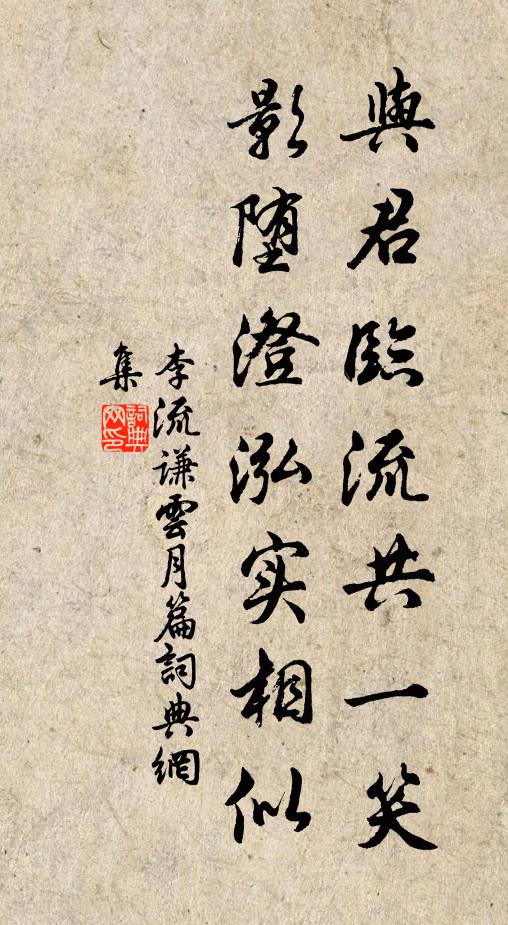 與君臨流共一笑
影墮澄泓实相似
李流謙雲月篇詞典網
集
詞典
网印